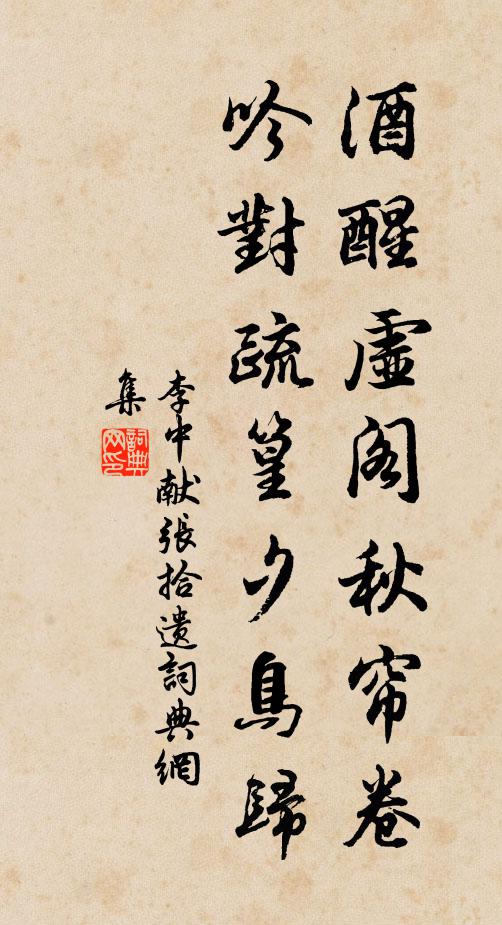 酒醒虛阁秋帘卷
吟對疏篁夕鳥歸
李中献張拾遺詞典網
集
詞典
网印